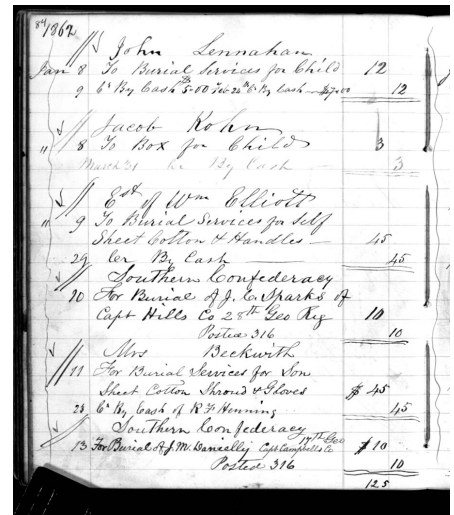 84 1862
John Lennahan
Jan 8 To Burial Services for Child 12
9 Cr By Cash 5.00 Feb 26th Cr By Cash $7.00 12
Jacob Kohn
" 8 To Box for Child 3
March 31 Cr By Cash 3
Est of Wm Elliott
" 9 To Burial Services for Self
Sheet Cotton & Handles 45
29 Cer By Cash 45
Southern Confederacy
10 For Burial of J. C. Sparks of
Capt Hills Co 28th Geo Reg 10
Posted 316 10
Mrs Beckwith
11 For Burial Services for Son
Sheet Cotton Shroud & Gloves $ 45
23 Cr By Cash of R F Henning 45
Southern Confederacy
13 For Burial of J. M. Danielly Capt Campbells Co 17th Geo $10
Posted 316 10
125